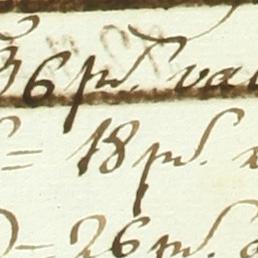 36 pd. va
= 18 pd.
= 26 pd.